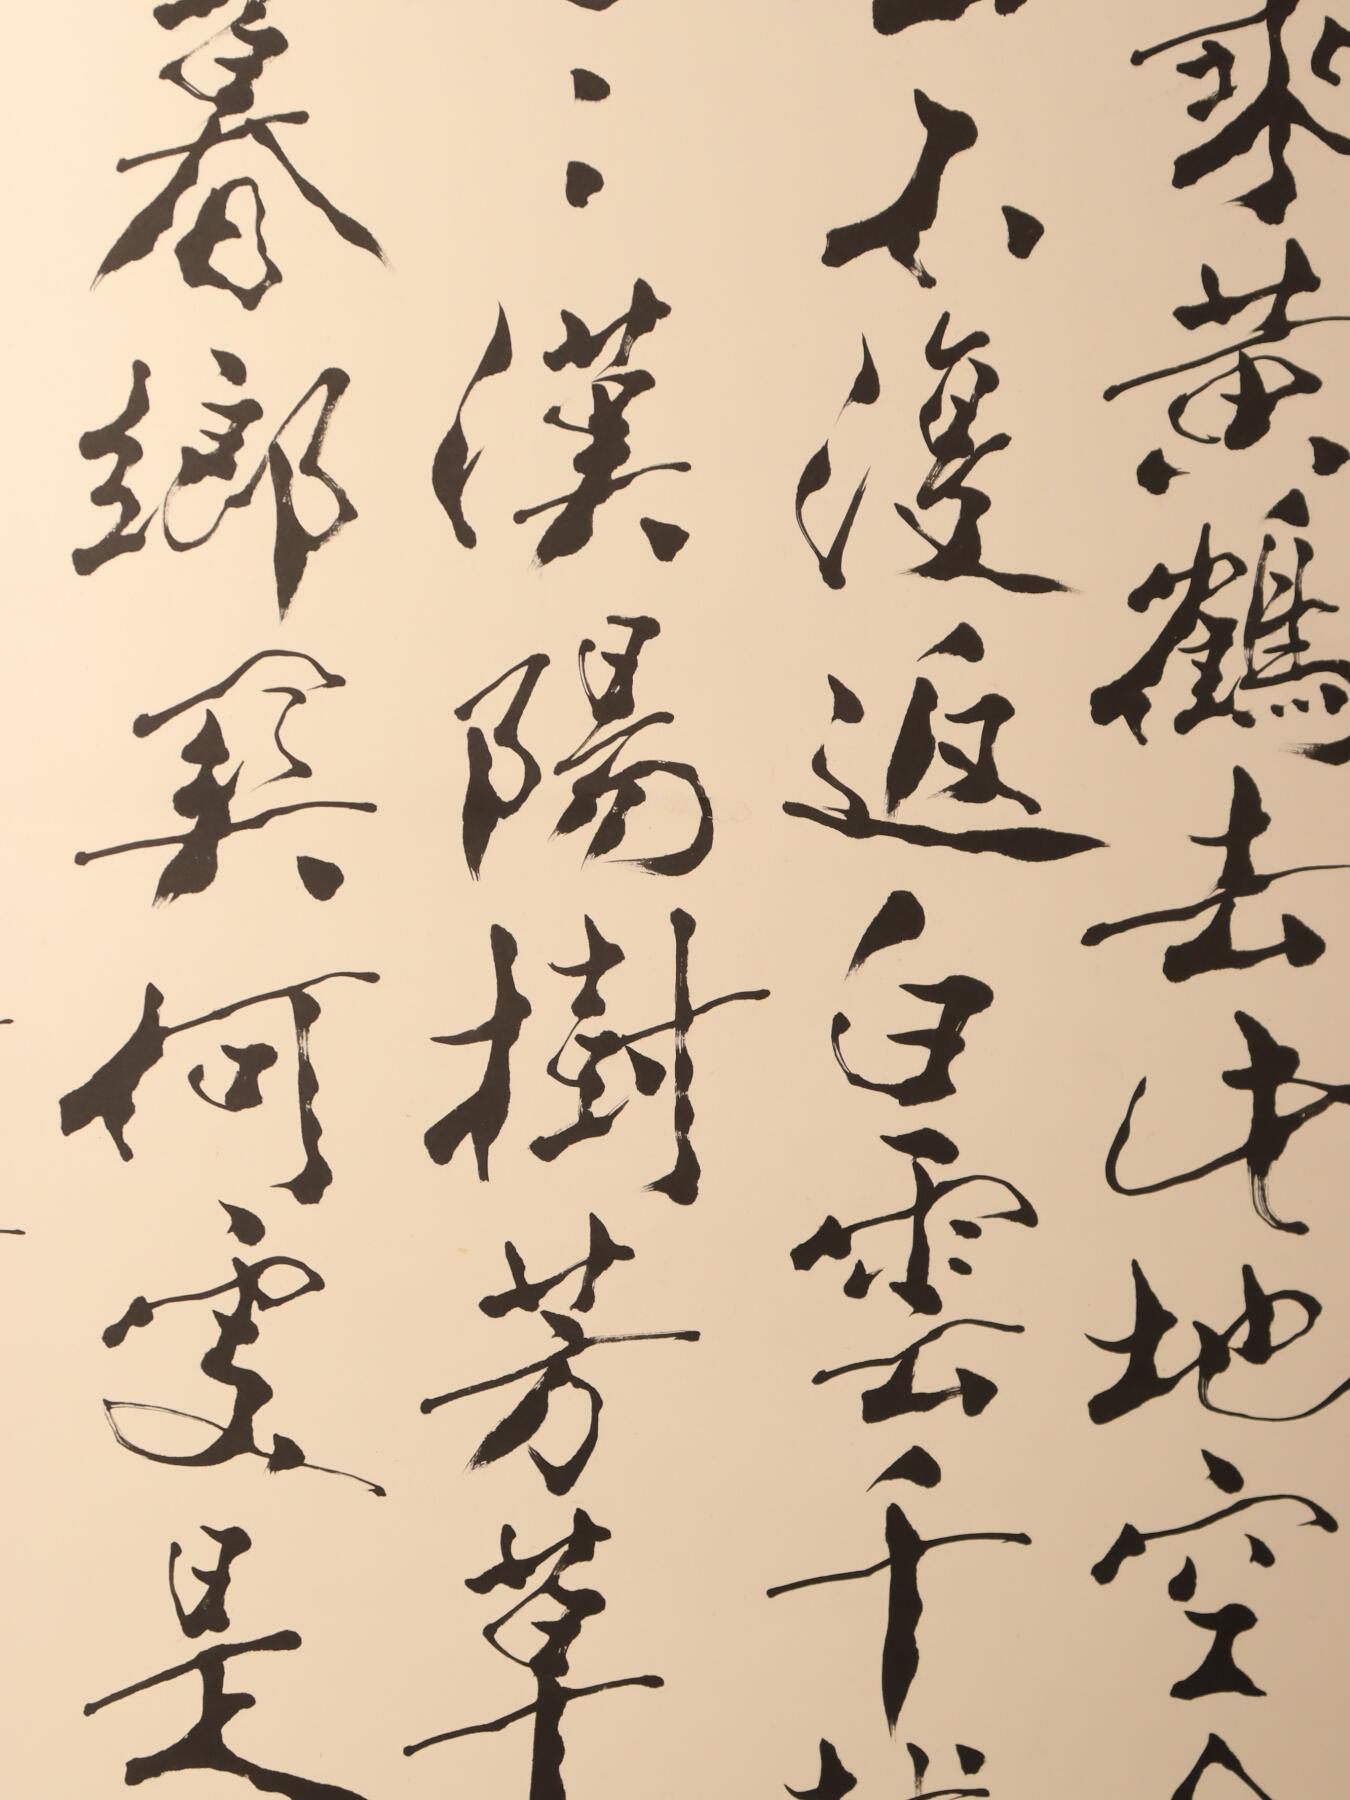 乘黃鶴去此地空
不復返白雲千
〻漢陽樹芳草
暮鄉關何處是